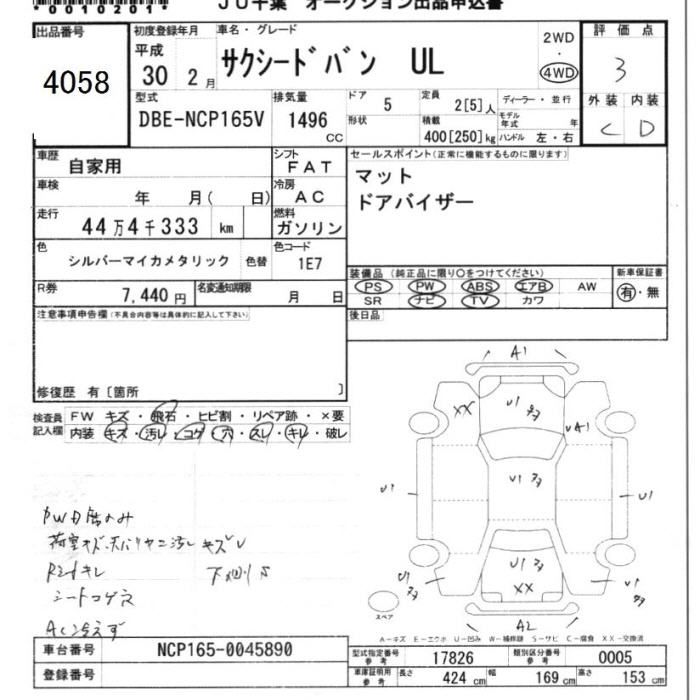 *0010201*
JU千葉 オークション出品申込書
出品番号
4058
初度登録年月
平成
30年 2月
車名・グレード
サクシードバン UL
2WD
・
4WD
評価点
3
型式
DBE-NCP165V
排気量
1496
CC
ドア
5
形状
定員
2[5]人
積載
400[250]kg
ディーラー・並行
モデル年式 年
ハンドル 左・右
外装 内装
C D
車歴
自家用
シフト
FAT
セールスポイント(正常に機能するものに限ります)
マット
ドアバイザー
車検
年 月( 日)
冷房
AC
走行
44万4千333 km
燃料
ガソリン
色
シルバーマイカメタリック
色替
色コード
1E7
装備品(純正品に限り○をつけてください)
PS PW ABS エアB AW
SR ナビ TV カワ
新車保証書
有・無
R券
7,440円
名変通知期限
月 日
後日品
注意事項申告欄(不具合内容等は具体的に記入して下さい)
修復歴 有〔箇所 〕
検査員記入欄
FW キズ・飛石・ヒビ割・リペア跡・×要
内装 キズ・汚レ・コゲ・穴・スレ・キレ・破レ
A1
XX
U1
U1
U1
U1
U1
XX
U1
U1
A2
スペア
シートコゲ穴
A-キズ E-エクボ U-凹み W-補修跡 S-サビ C-腐食 XX-交換済
車台番号
NCP165-0045890
登録番号
型式指定番号
参考
17826
類別区分番号
参考
0005
車庫証明用
参考
長さ
424 cm
幅
169 cm
高さ
153 cm